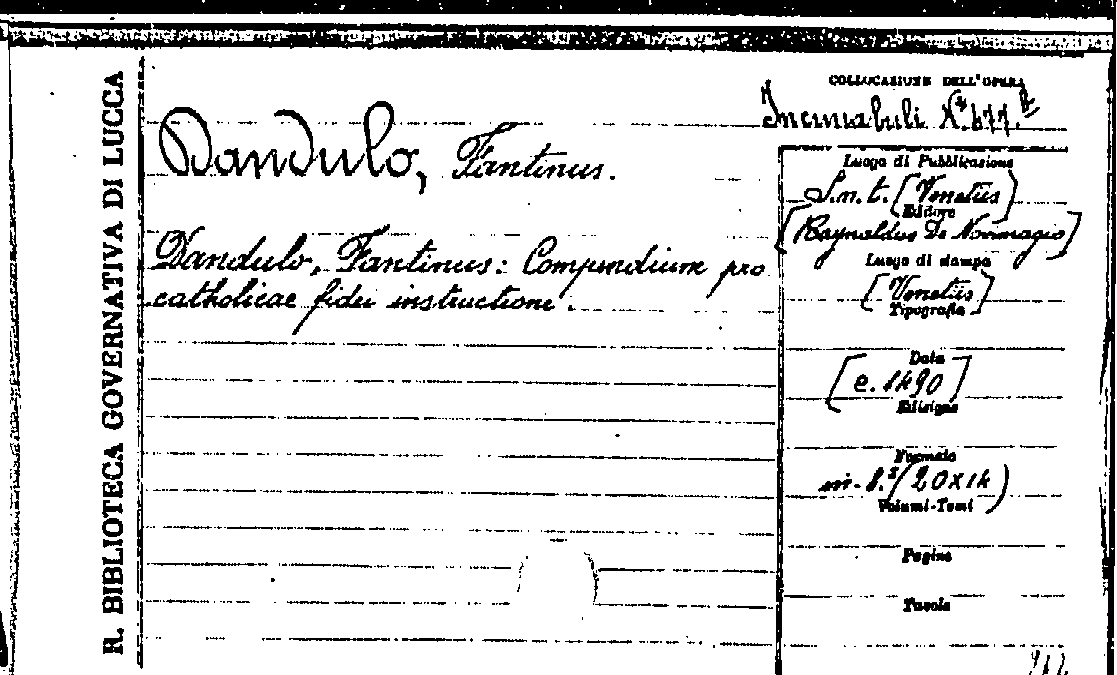 R. BIBLIOTECA GOVERNATIVA DI LUCCA
COLLOCAZIONE DELL'OPERA
Incunabuli N.º 477.b
Dandulo, Fantinus.
Dandulo, Fantinus: Compendium pro
catholicae fidei instructione.
Luogo di Pubblicazione
S.n.t. [Venetiis]
Editore
[Raynaldus De Novimagio]
Luogo di stampa
[Venetiis]
Tipografia
Data
[c. 1490]
Edizione
Formato
in-8.º (20x14)
Volumi-Tomi
Pagine
Tavole